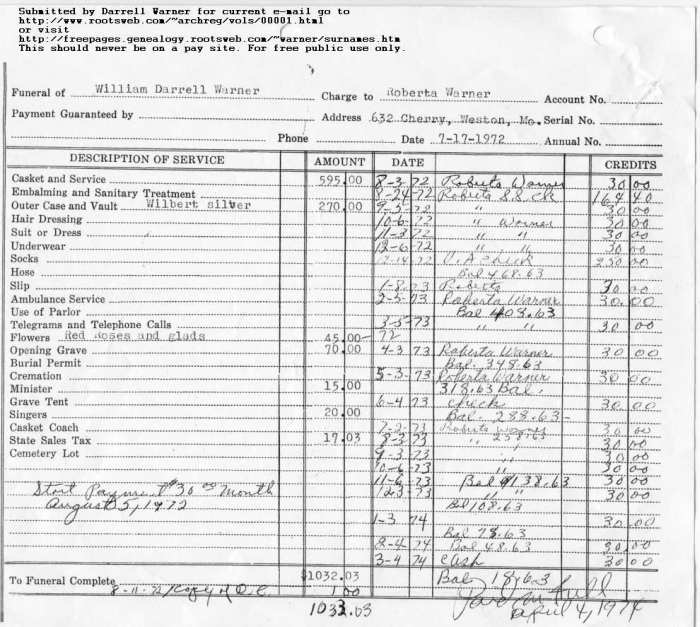 Submitted by Darrell Warner for current e-mail go to
http://www.rootsweb.com/~archreg/vols/00001.html
or visit
http://freepages.genealogy.rootsweb.com/~warner/surnames.htm
This should never be on a pay site. For free public use only.
Funeral of William Darrell Warner Charge to Roberta Warner Account No.
Payment Guaranteed by Address 632 Cherry, Weston, Mo. Serial No.
Phone Date 7-17-1972 Annual No.
DESCRIPTION OF SERVICE AMOUNT DATE CREDITS
Casket and Service 595.00 8-3-72 Roberta Warner 30 00
Embalming and Sanitary Treatment 8-24-72 Roberta S.S. CK 164 40
Outer Case and Vault Wilbert silver 270.00 9-5-72 30 00
Hair Dressing 10-6-72 " Warner 30 00
Suit or Dress 11-3-72 " " 30 00
Underwear 12-6-72 " " 30 00
Socks 12-14-72 V.A Check 250 00
Hose Bal 468.63
Slip 1-8-73 Roberta 30 00
Ambulance Service 2-5-73 Roberta Warner 30.00
Use of Parlor Bal 408.63
Telegrams and Telephone Calls 3-5-73 " " 30 00
Flowers Red Roses and glads 45.00 72
Opening Grave 70.00 4-3 73 Roberta Warner 30 00
Burial Permit Bal. 348.63
Cremation 5-3-73 Roberta Warner 30 00
Minister 15.00 318.63 Bal.
Grave Tent 6-4 73 check 30 00
Singers 20.00 Bal. 288.63
Casket Coach 7-2-73 Roberta Warner 30 00
State Sales Tax 17.03 8-3-73 " 258.63 30 00
Cemetery Lot 9-3-73 " 30 00
10-6-73 " 30 00
11-6-73 Bal 138.63 30 00
Start Payment $30 00 month 12-3-73 " " 30 00
August 5, 1972 Bal 108.63
1-3 74 30.00
Bal 78.63
2-4-74 Bal 48.63 30.00
3-4 74 Cash 30.00
To Funeral Complete $1032.03 Bal 18.63
8-11-72 / Copy of D.C. 1 00
1033.03 Paid in full
April 4, 1974